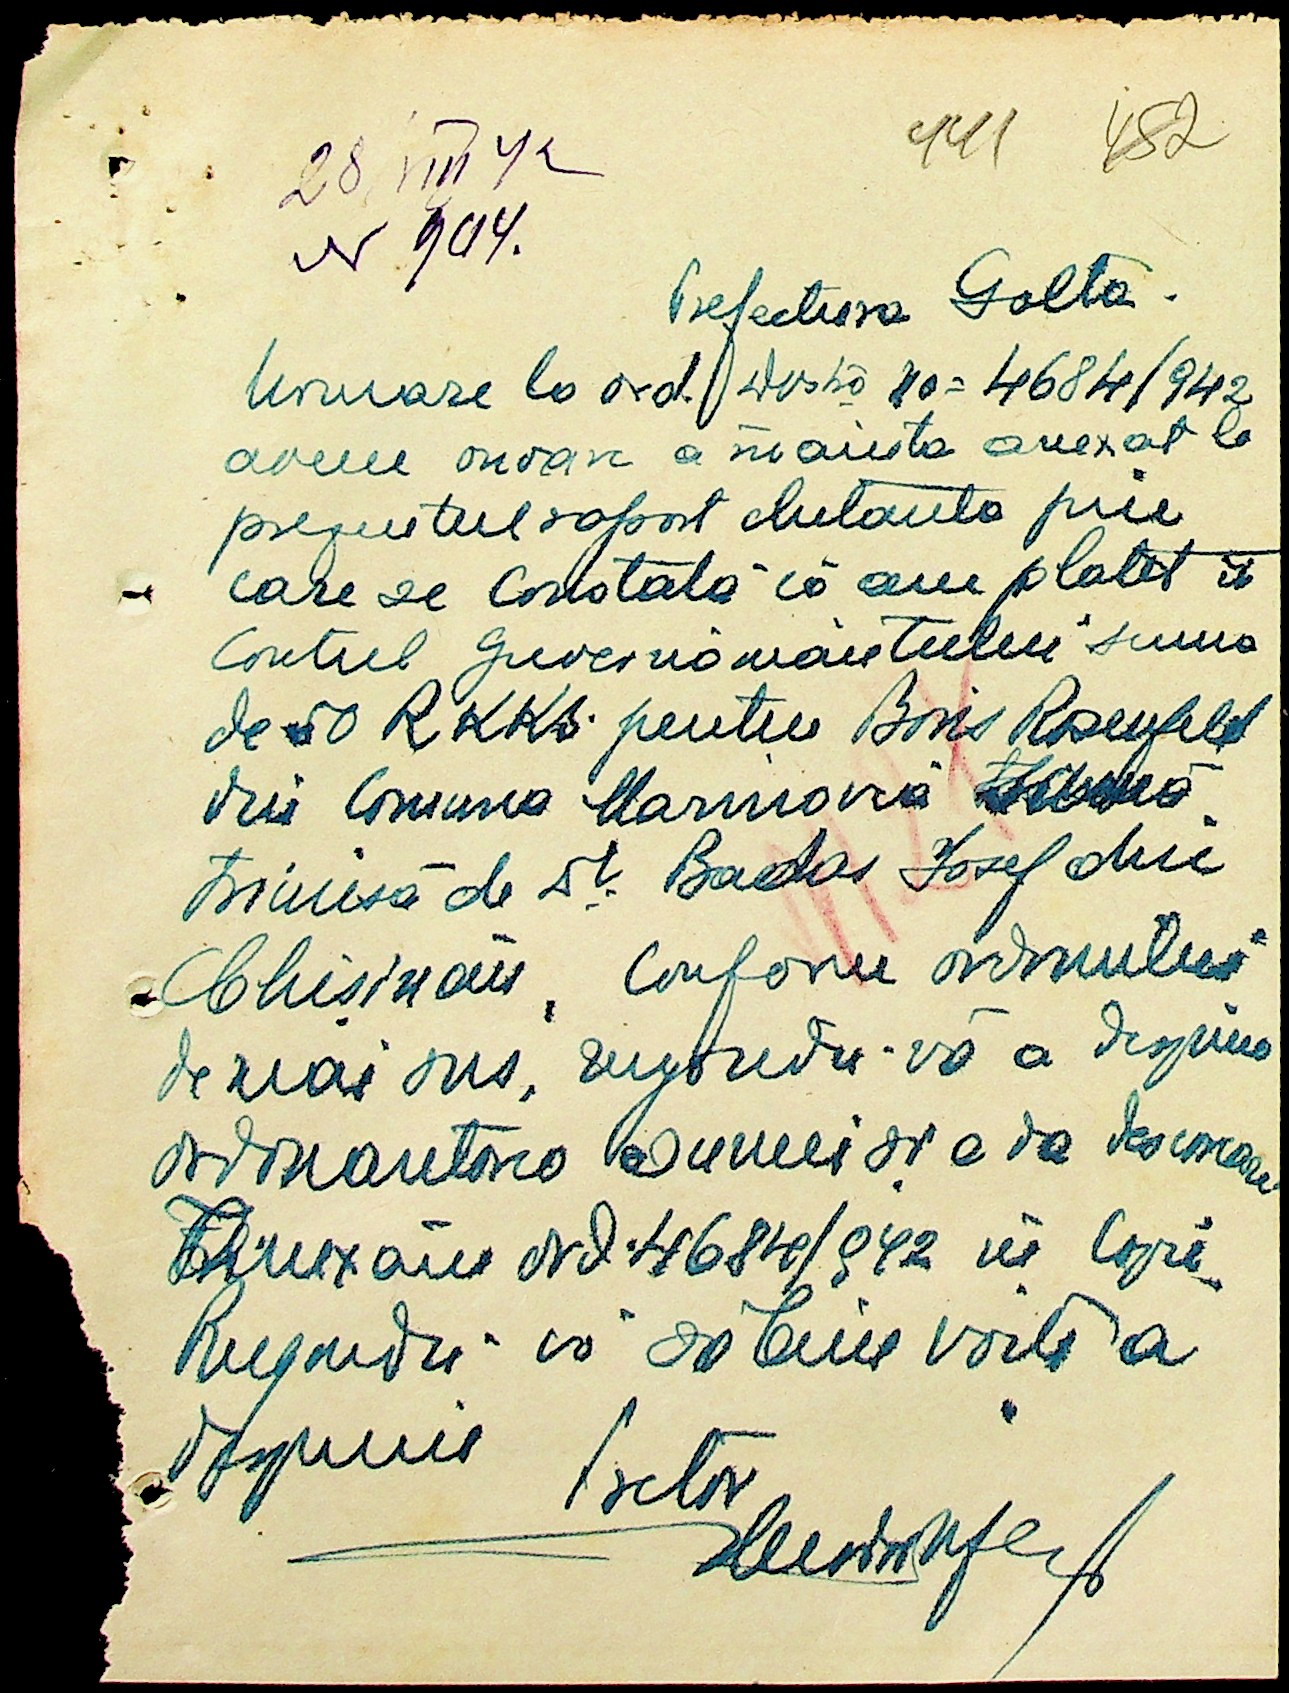 441 482
28 VIII 42
Nr 904.
Prefectura Golta.
Urmare la ord. Dvstră No= 4684/942
avem onoare a înainta anexat la
prezentul raport chitanta prin
care se constată că am platit în
Contul Guvernămăntului suma
de 50 RKKS. pentru Boris Rosenfeld
din Comuna Marinovca
trimisă de Dl. Badas Iosef din
Chisinău, Conform ordinului
de mai sus, rugându-vă a dispune
ordonantarea sumei si a da descarcare
Anexăm ord. 4684/942 în Copie
Rugându-vă să bine voiti a
dispune
Pretor